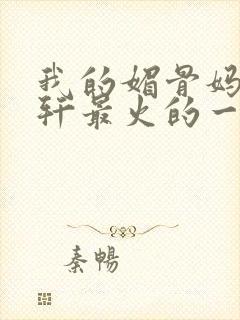 我的媚骨妈
轩最火的一
秦暢